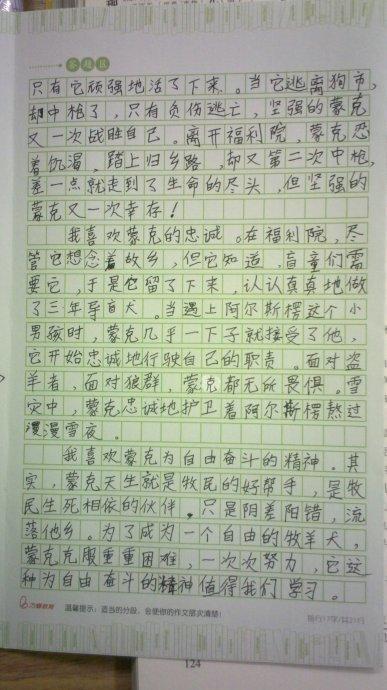 答题区
只有它顽强地活了下来。当它逃离狗市,
却中枪了,只有负伤逃亡,坚强的蒙克
又一次战胜自己。离开福利院,蒙克忍
着饥渴,踏上归乡路,却又第二次中枪,
差一点就走到了生命的尽头,但坚强的
蒙克又一次幸存!
我喜欢蒙克的忠诚。在福利院,尽
管它想念着故乡,但它知道,盲童们需
要它,于是它留了下来,认认真真地做
了三年导盲犬。当遇上阿尔斯楞这个小
男孩时,蒙克几乎一下子就接受了他,
它开始忠诚地行驶自己的职责。面对盗
羊者,面对狼群,蒙克都无所畏惧。雪
灾中,蒙克忠诚地护卫着阿尔斯楞熬过
漫漫雪夜。
我喜欢蒙克为自由奋斗的精神。其
实,蒙克天生就是牧民的好帮手,是牧
民生死相依的伙伴。只是阴差阳错,流
落他乡。为了成为一个自由的牧羊犬,
蒙克克服重重困难,一次次努力,它这
种为自由奋斗的精神值得我们学习。
方洲教育 温馨提示:适当的分段,会使你的作文层次清楚!
每行17字/共21行
124